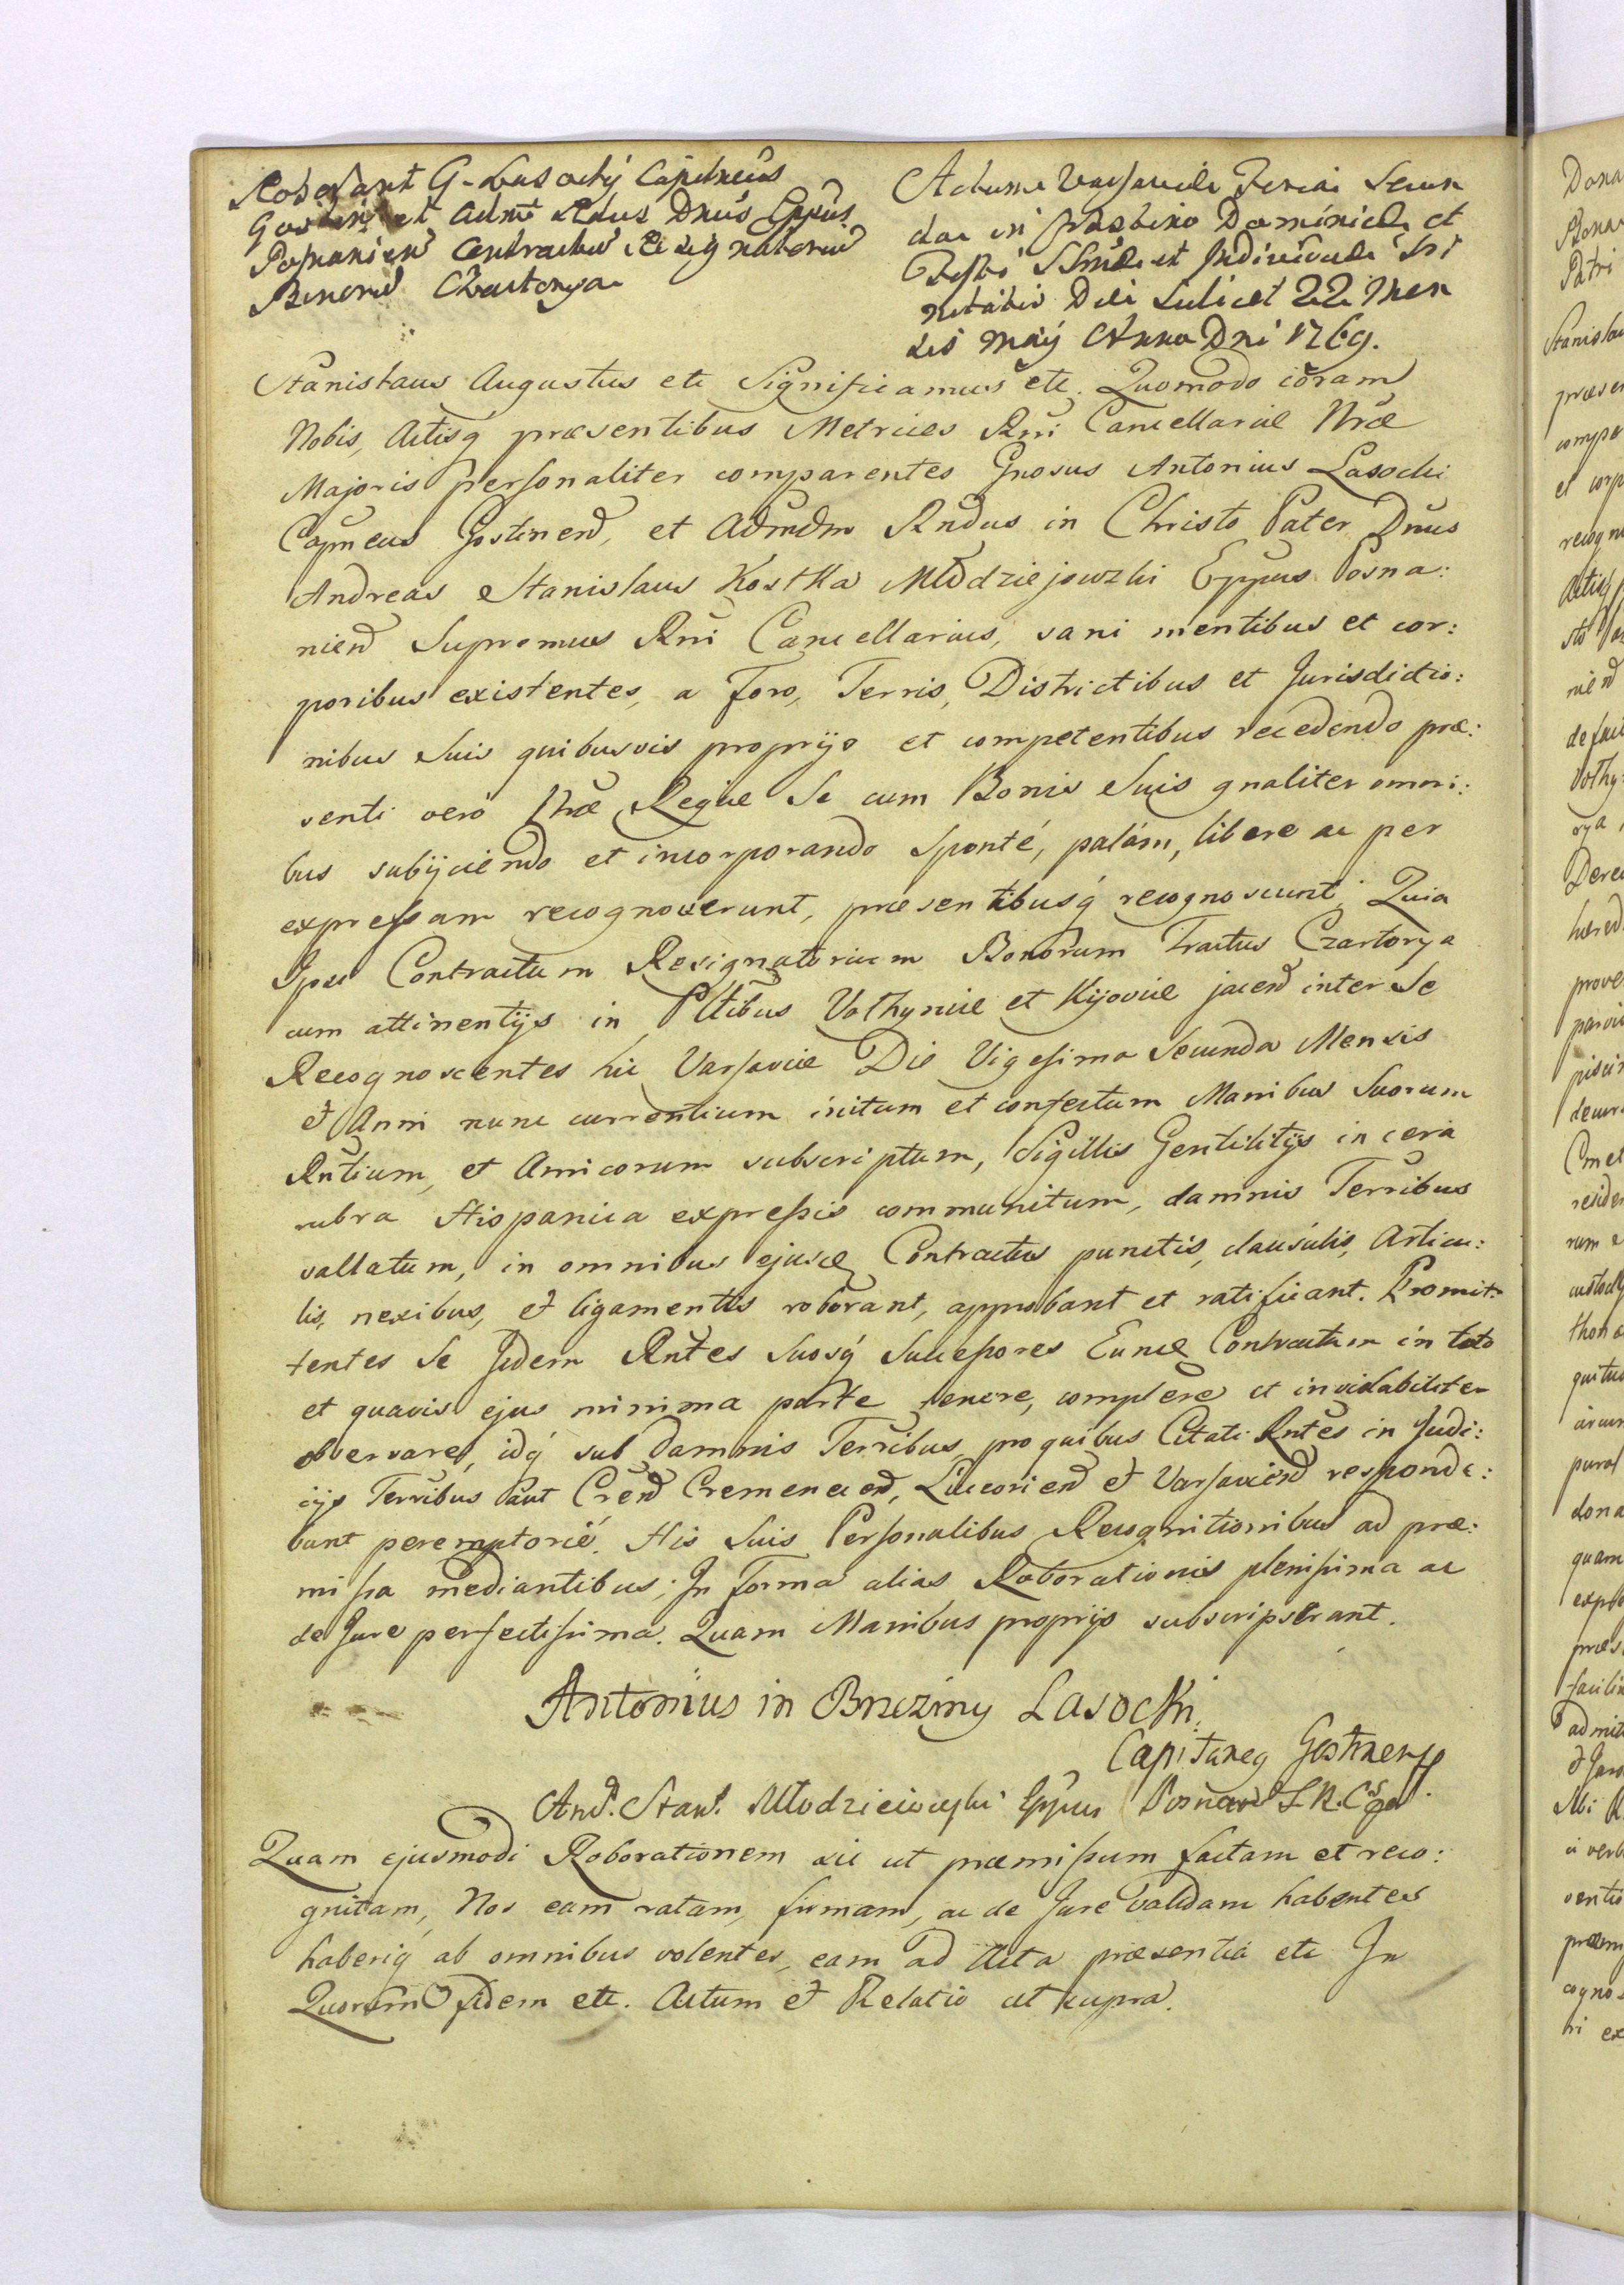 Roborant G. Lasockij Capitneus
Gostinen et Admt Rdus Dnus Eppus
Posnanien Contractu Resignatoriu
Bonoru Czartorya
Actum Varsaviæ Feria Secun
da in Crastino Dominicæ et
Festi SSmæ et Individuæ Tri
nitatis Diei scilicet 22 Men
sis Maij Anno Dni 1769.
Stanislaus Augustus etc Significamus etc. Quomodo coram
Nobis, Actisq præsentibus Metrices Rni Cancellariæ Nræ
Majoris personaliter comparentes Gnosus Antonius Lasocki
Capneus Gostinen, et Admdm Rndus in Christo Pater Dnus
Andreas Stanislaus Kostka Młodziejowzki Eppus Posna:
nien Supremus Rni Cancellarius, sani mentibus et cor:
poribus existentes, a Foro, Terris, Districtibus et Jurisdictio:
nibus Suis quibusvis proprijs et competentibus recedendo præ:
senti vero Nræ Regiæ Se cum Bonis Suis gnaliter omni:
bus subijciendo et incorporando Sponté, palám, libere ac per
expressam recognoverunt, præsentibusq recognoscunt, Quia
Ipsi Contractum Resignatorium Bonorum Tractus Czartorya
cum attinentijs in Pltibus Volhyniæ et Kijoviæ jacen inter Se
Recognoscentes hic Varsaviæ Die Vigesima Secunda Mensis
et Anni nunc currentium initum et confectum Manibus Suorum
Rntium, et Amicorum subscriptum, Sigillis Gentilitijs in cera
rubra Hispanica expressis communitum, damnis Terribus
vallatum, in omnibus ejusd Contractus punctis, clausulis, Articu:
lis, nexibus, et ligamentis roborant, approbant et ratificant. Promit:
tentes Se Jidem Rntes Suosq Successores Eund Contractum in toto
et quavis ejus minima parte tenere, complere et inviolabiliter
observare, idq sub damnis Terribus, pro quibus Citati Rntes in Judi:
cijs Terribus aut Cren Cremenecen, Luceorien et Varsavien responde:
bunt peremptorié. His Suis Personalibus Recognitionibus ad præ:
missa mediantibus; In forma alias Roborationis plenissima ac
de Jure perfectissima. Quam Manibus proprijs subscripserant.
Antonius in Brzeziny Lasocki
Capitaneg Gostinens
And. Stan. Młodzieiowski Eppus Posnan S. R. C
Quam ejusmodi Roborationem sic ut præmissum factam et reco:
gnitam, Nos eam ratam, firmam, ac de Jure validam habentes
haberiq ab omnibus volentes, eam ad Acta præsentia etc In
Quorum fidem etc. Actum et Relatio ut supra.